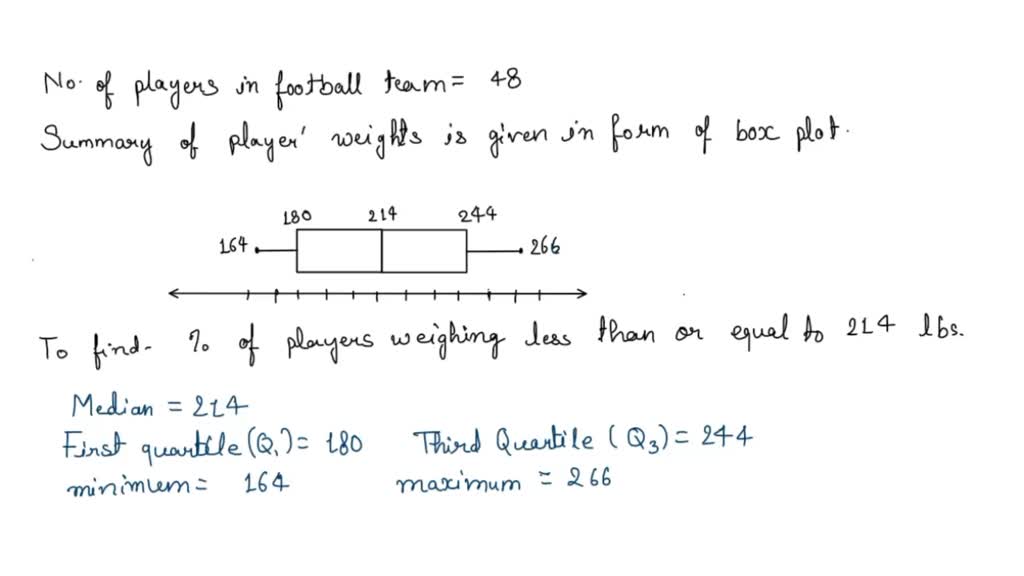 No. of players in football team = 48
Summary of player' weights is given in form of box plot.
180 214 244
164 266
To find- % of players weighing less than or equal to 214 lbs.
Median = 214
First quartile (Q1) = 180 Third Quartile (Q3) = 244
minimum = 164 maximum = 266